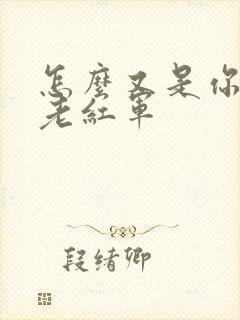 怎麼又是你
老紅軍
段緒卿